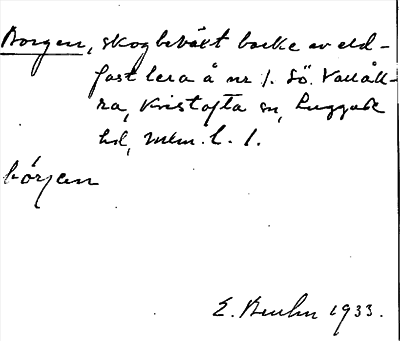 Borgen, skogbeväxt backe av eld-
fast lera å nr 1. Sö. Vallåk-
ra, Kristofta sn, Luggude
hd, Mlm. L. 1.
börjen
E. Bruhn 1933.